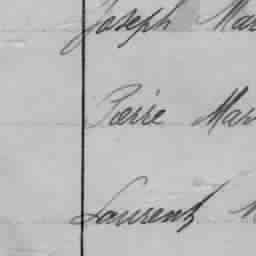 Joseph Mar
Pierre Mar
Laurent M